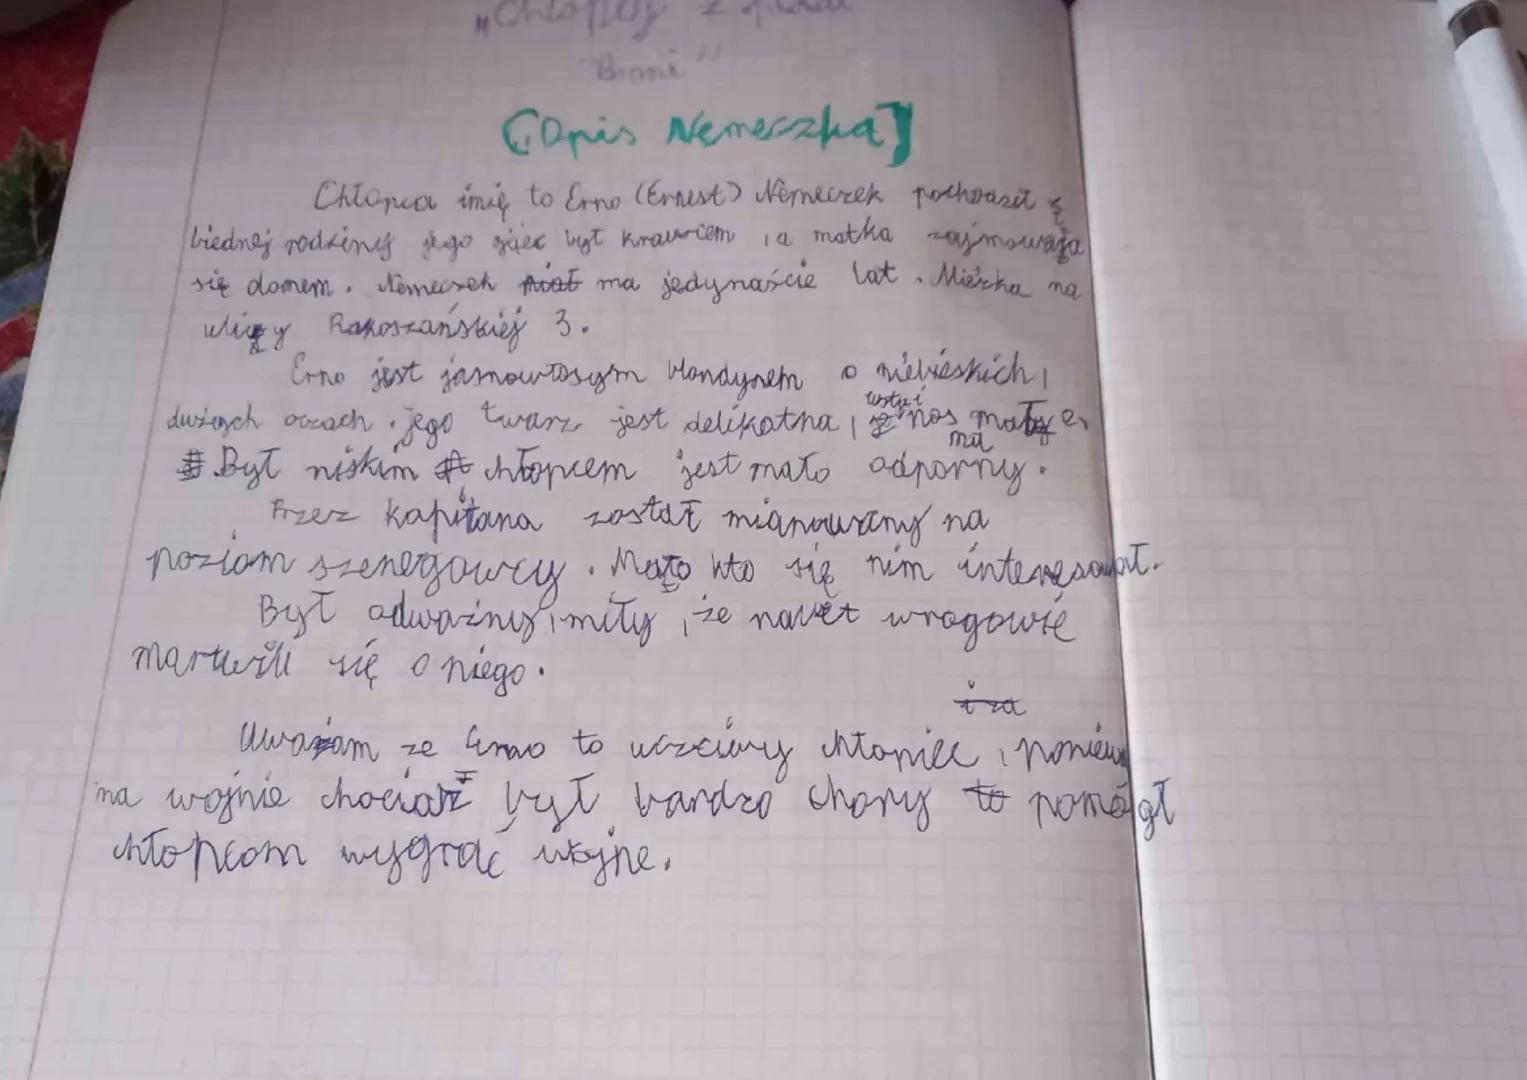 "Chłopcy z placu
Broni"
[Opis Nemeczka]
Chłopca imię to Erno (Ernest) Nemeczek pochodził z
biednej rodziny jego ojciec był krawcem, a matka zajmowała
się domem. Nemeczek miał ma jedynaście lat. Mieszka na
ulicy Rakoszańskiej 3.
Erno jest jasnowłosym blondynem o niebieskich,
dużych oczach. jego twarz jest delikatna, nos mały
ma
Był niskim chłopcem jest mało odporny.
Przez kapitana został mianowany na
poziom szeregowcy. Mało kto się nim interesował.
Był odważny, miły, że nawet wrogowie
martwili się o niego.
i za
Uważam że Erno to uczciwy chłopiec, ponieważ
na wojnie chociaż był bardzo chory to pomógł
chłopcom wygrać wojnę.